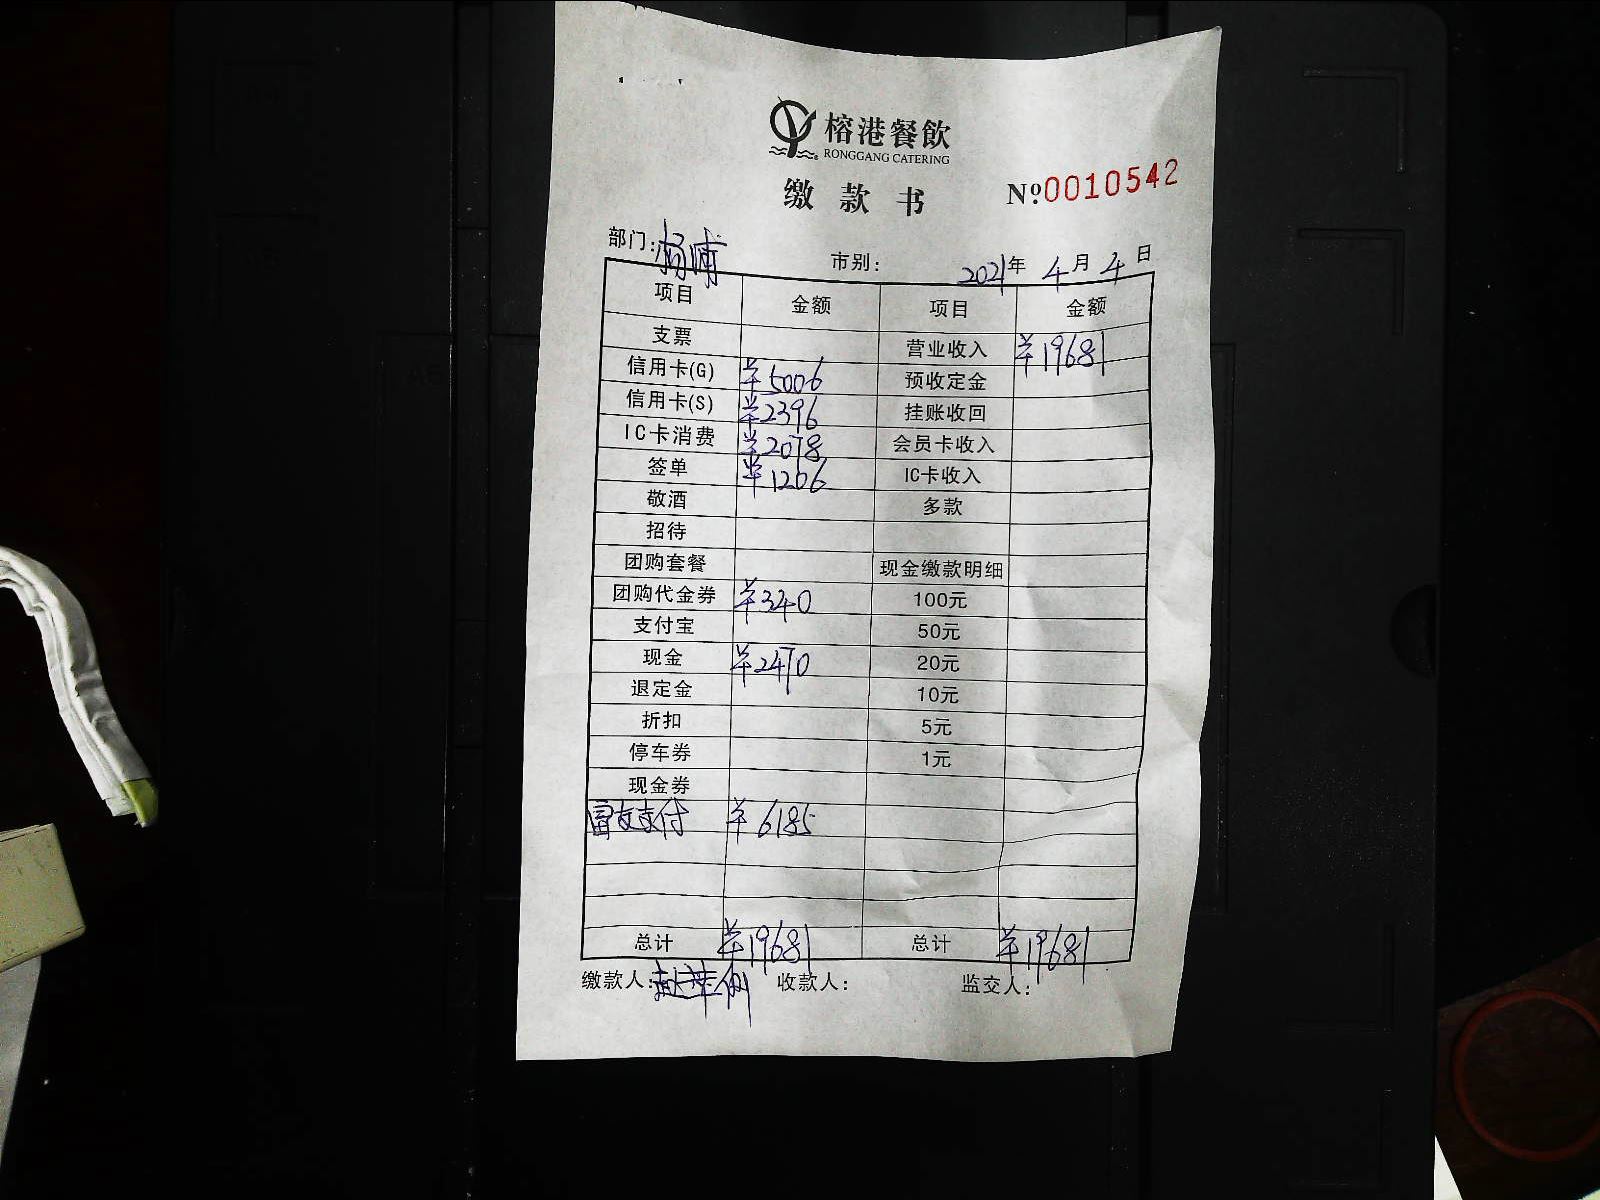 榕港餐飲
RONGGANG CATERING
缴款书 Nº:0010542
部门:杨浦 市别: 2021年4月4日
项目 金额 项目 金额
支票 营业收入 ¥19681
信用卡(G) ¥5006 预收定金
信用卡(S) ¥2396 挂账收回
IC卡消费 ¥2078 会员卡收入
签单 ¥1206 IC卡收入
敬酒 多款
招待
团购套餐 现金缴款明细
团购代金券 ¥340 100元
支付宝 50元
现金 ¥2470 20元
退定金 10元
折扣 5元
停车券 1元
现金券
支付 ¥6185
总计 ¥19681 总计 ¥19681
缴款人: 收款人: 监交人: